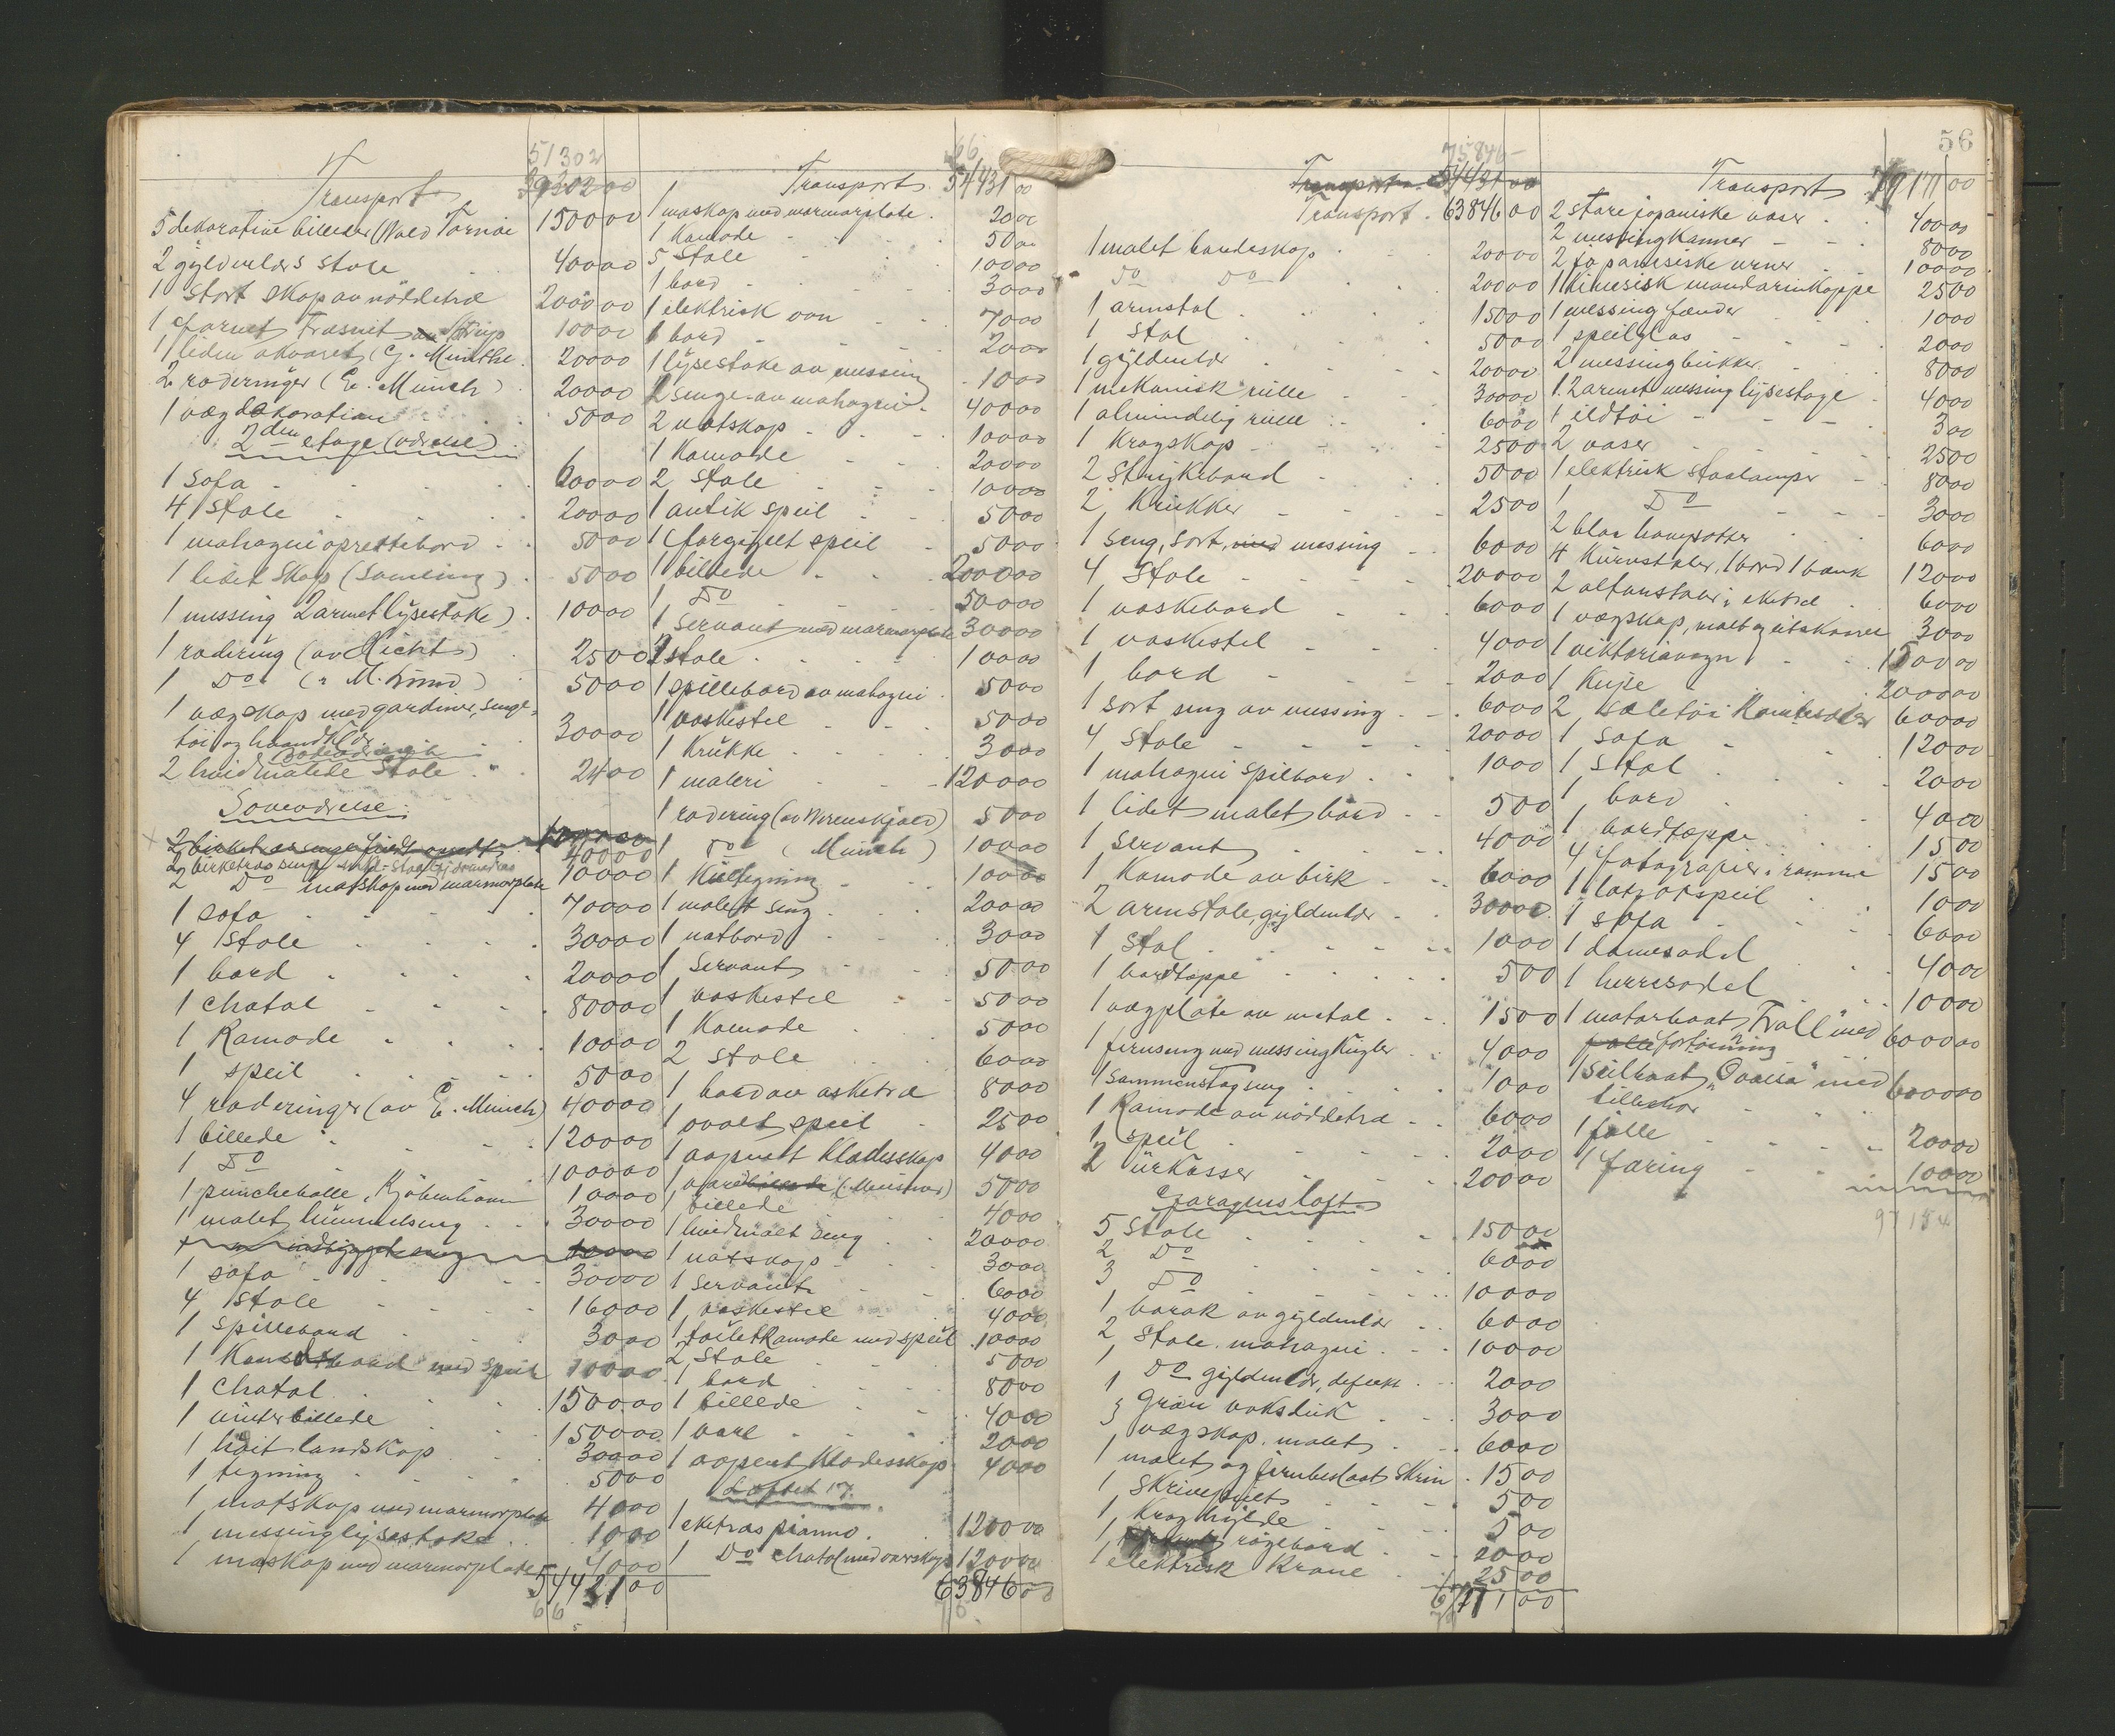 51302
Transport 39302 00
5 dekorative billeder (Wald Tornøe 1500 00
2 gyldenlærs stole 400 00
1 stort skap av nöddetræ 2000 00
1 farvet Træsnit 100 00
1 liden akvarel (G. Munthe 200 00
2 raderinger (E. Munch) 200 00
1 vægdekoration 50 00
2den etage (værelse)
1 Sofa 600 00
4 Stole 200 00
1 mahogni oprettebord 50 00
1 lidet Skap (Samling) 50 00
1 messing 2 armet lysestake) 100 00
1 radering (av Nicht) 25 00
1 Do ( 50 00
1 vægskap med gardiner, senge-
töi og haandklær 300 00
2 hvidmalede Stole 24 00
Soveværelse:
400 00
2 Do natskap med marmorplate 100 00
1 sofa 700 00
4 Stole 300 00
1 bord 200 00
1 chatol 800 00
1 Komode 100 00
1 speil 50 00
4 raderinger (av E. Münch) 400 00
1 billede 1200 00
1 Do 1000 00
1 puncheballe, Kjøbenhavn 100 00
1 malet himmelseng 300 00
1 sofa 300 00
4 Stole 160 00
1 Spillebord 30 00
1 med speil 100 00
1 Chatol 1500 00
1 vinterbillede 1500 00
1 høit landskap 300 00
1 tegning 50 00
1 natskap med marmorplate 40 00
1 messing lysestake 10 00
1 naskap med marmorplate 40 00
54431 00
66
66
Transport 54431 00
1 naskap med marmorplate 20 00
1 Komode 50 00
5 Stole 100 00
1 bord 30 00
1 elektrisk ovn 70 00
1 bord 20 00
1 lysestake av messing 10 00
2 senge av mahogni 400 00
2 natskap 100 00
1 Komode 200 00
2 Stole 100 00
1 antik speil 50 00
1 forgyldt speil 50 00
1 billede 2000 00
1 Do 500 00
1 Servant med marmorplate 300 00
2 stole 100 00
1 spillebord av mahogni 50 00
1 vaskestel 50 00
1 Krukke 30 00
1 maleri 1200 00
1 radering (av Werenskjold) 50 00
1 Do (Münch) 100 00
1 Kultegning 100 00
1 malet seng 200 00
1 natbord 30 00
1 Servant 50 00
1 vaskestel 50 00
1 Komode 50 00
2 Stole 60 00
1 bord av asketræ 80 00
1 ovalt speil 25 00
1 Klædesskap 40 00
50 00
1 billede 40 00
1 hvidmalt seng 200 00
1 natskap 30 00
1 Servant 60 00
1 vaskestel 40 00
1 toiletkomode med speil 100 00
2 Stole 50 00
1 bord 80 00
1 billede 40 00
1 20 00
1 Klædesskap 40 00
Loftet 17.
1 eketræs pianino 1200 00
1 Do chatol med overskap 1200 00
63846 00
75
75846 –
Transport 54431 00
Transport 63846 00
1 malet 200 00
Do Do 200 00
1 armstol 150 00
1 Stol 50 00
1 gyldenlær 200 00
1 mekanisk rulle 300 00
1 almindelig rulle 60 00
1 Kragskap 25 00
2 Strykebord 50 00
2 Krukker 25 00
1 seng, sort, med messing 60 00
4 Stole 200 00
1 vaskebord 60 00
1 vaskestel 40 00
1 bord 20 00
1 sort seng av messing 60 00
4 Stole 200 00
1 mahogni spilbord 10 00
1 lidet malet bord 5 00
1 Servant 40 00
1 Komode av birk 60 00
2 armstole, gyldenlær 300 00
1 Stol 10 00
1 bordteppe 5 00
1 vægplate av metal 15 00
1 jernseng med messing Kugler 40 00
1 sammenslagseng 10 00
1 Komode av nöddetræ 60 00
1 speil 20 00
2 urkasser 200 00
Garagens loft
5 Stole 150 00
2 Do 60 00
3 Do 100 00
1 av gyldenlær 60 00
2 Stole, mahogni 100 00
1 Do gyldenlær, defekt 20 00
1 Grön voksduk 30 00
3 vægskap, malet 60 00
1 malet og jernbeslaat skrin 15 00
1 Skrivepult 5 00
1 Kraghylde 5 00
1 rögebord 20 00
1 elektrisk Krone 25 00
67171 00
56
Transport 79171 00
2 store japanske vaser 400 00
2 messingkanner 80 00
2 japanesiske urner 100 00
1 kinesisk mandarinkappe 25 00
1 messing fender 10 00
1 speilglas 20 00
2 messingbukker 80 00
1 2 armet messing lysestage 40 00
1 ildtöi 3 00
2 vaser 25 00
1 elektrisk staalampe 80 00
1 Do 30 00
2 blaa 60 00
4 Kurvstoler, 1 bord 1 bænk 120 00
2 altanstoler i eketræ 60 00
1 vægskap, malt og utskaaret 30 00
1 viktoriavogn 1500 00
1 Kupe 2000 00
2 seletöi 600 00
1 Sofa 120 00
1 Stol 20 00
1 bord 40 00
1 bordteppe 15 00
4 fotografier i ramme 15 00
1 10 00
1 sofa 60 00
1 damesadel 40 00
1 herresadel 100 00
1 motorbaat „Troll" med 6000 00
fortöining
1 Seilbaat med 6000 00
tilbehör
1 jolle 200 00
1 færing 100 00
97154